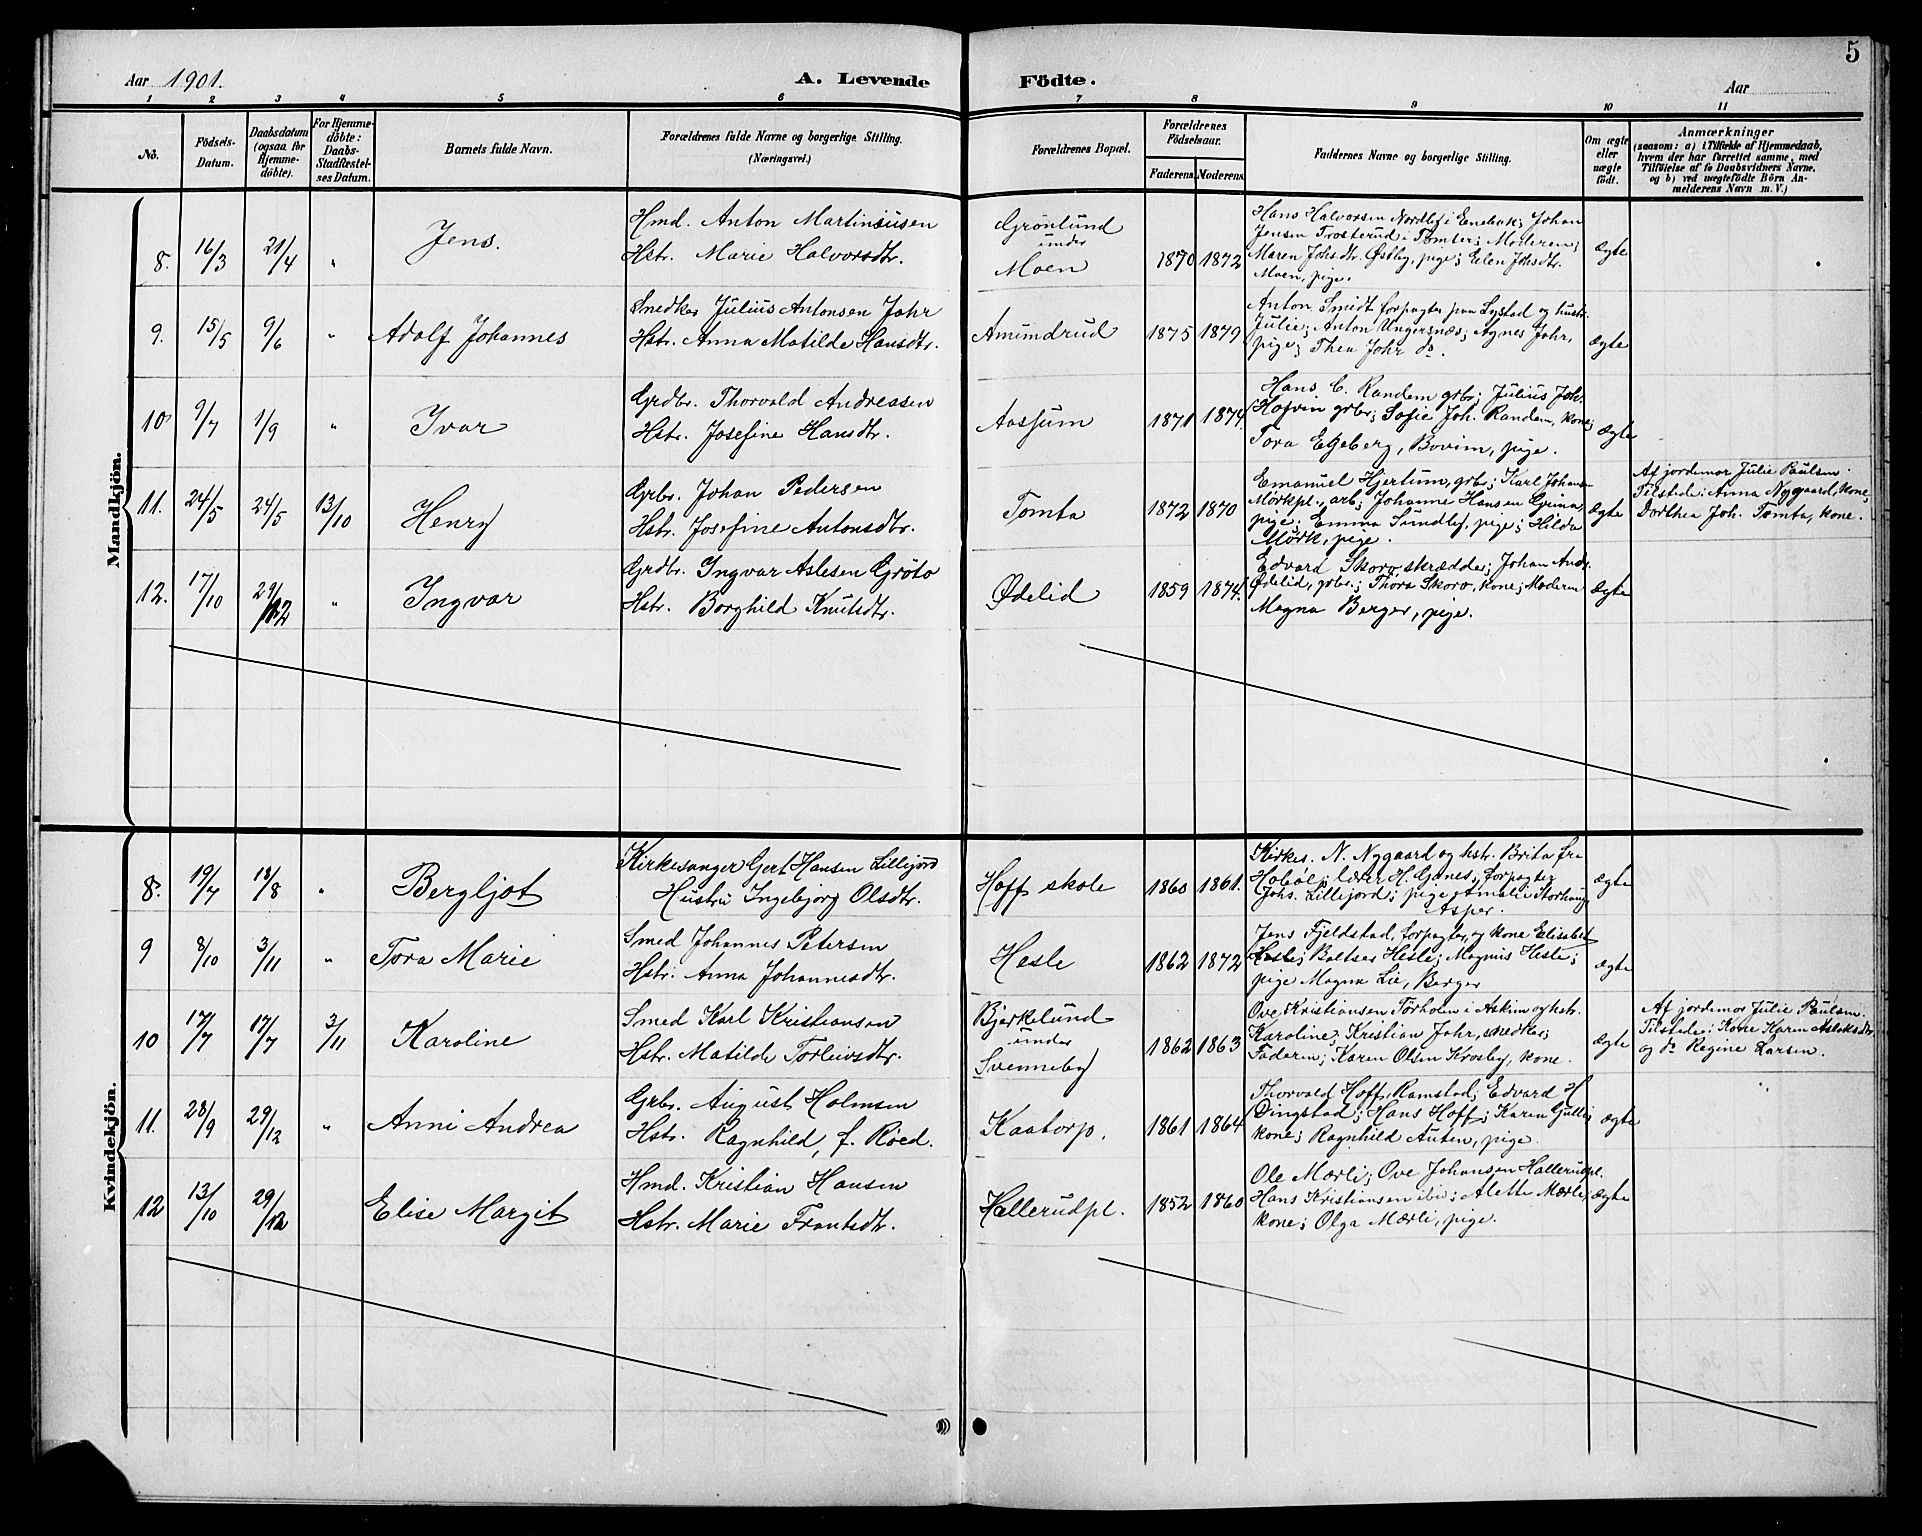 5
Aar 1901. A. Levende Födte. Aar
1 2 3 4 5 6 7 8 9 10 11
No.
Födsels-
Datum.
Daabsdatum
(ogsaa for
Hjemme-
döbte).
For Hjemme-
döbte:
Daabs-
Stadfæstel-
ses Datum.
Barnets fulde Navn.
Forældrenes fulde Navne og borgerlige Stilling.
(Næringsvei.)
Forældrenes Bopæl.
Forældrenes
Födselsaar.
Faderens Moderens
Faddernes Navne og borgerlige Stilling.
Om ægte
eller
uægte
födt.
Anmærkninger
(saasom: a) i Tilfælde af Hjemmedaab,
hvem der har forrettet samme, med
Tilföielse af to Daabsvidners Navne,
og b) ved uægtefödte Börn An-
melderens Navn m. V.)
Mandkjön.
8. 16/3 21/4 " Jens.
Hmd. Anton Martiniusen
Hstr. Marie Halvorsdtr.
Grönlund
under
Moen
1870 1872
Hans Halvorsen Nordlef i Enebak; Johan
Jensen Trosterud i Tomter; Moderen;
Maren Johsdtr. Østby, pige; Elen Johsdtr.
Moen, pige.
Ægte
9. 15/5 9/6 " Adolf Johannes
Snedker Julius Antonsen Jahr
Hstr. Anna Matilde Hansdtr.
Amundrud
1875 1879
Anton Smidt forpagter paa Lystad og hustr.
Julie; Anton Ungersnæs; Agnes Jahr,
pige; Thea Jahr do.
Ægte
10 9/7 1/9 " Ivar
Grdbr. Thorvald Andreasen
Hstr. Josefine Hansdtr.
Aasjum
1871 1874.
Hans C. Randem grbr; Julius Joh.
Hofvin grbr; Sofie Joh. Randem, kone;
Tora Egeberg, Bovim, pige.
Ægte
11. 24/5 24/5 13/10 Henry
Grbr. Johan Pedersen
Hstr. Josefine Antonsdtr.
Tomta
1872 1870
Emanuel Hjertum, grbr; Karl Johansen
Mörkpl., arb; Johanne Hansen Grina,
pige; Emma Sundlef, pige; Hilda
Mörk, pige.
Ægte
Af jordemor Julie Paulsen.
Tilstede: Anna Nygaard, kone;
Dorthea Joh. Tomta, kone.
12. 17/10 29/12 " Ingvar
Grdbr. Ingvar Aslesen Gröto
Hstr. Borghild Knutsdtr.
Ødelid
1859 1874.
Edvard Skoro skrædder; Johan Andr.
Ødelid, grbr.; Thora Skoro, kone; Moderen
Magna Berger, pige.
Ægte
Kvindekjön.
8. 19/7 18/8 " Bergljot
Kirkesanger Gert Hansen Lillejord
Hustru Ingebjorg Olsdtr.
Hoff skole
1860 1861.
Kirkes. N. Nygaard og hstr. Brita fra
Hoböl; lærer H. Gjønes; forpagter
Johs. Lillejord; pige Amalie Storhaug
Asper.
Ægte
9 8/10 3/11 " Tora Marie
Smed Johannes Petersen
Hstr. Anna Johannesdtr.
Hesle
1862 1872
Jens Fjeldstad, forpagter, og kone Elisabet
Hesle; Baltser Hesle; Magnus Hesle;
pige Magna Lie, Berger
Ægte
10 17/7 17/7 3/11 Karoline
Smed Karl Kristiansen
Hstr. Matilde Torleivsdtr.
Bjerkelund
under
Svenneby
1862 1863
Ove Kristiansen Torholm i Askim og hstr.
Karoline; Kristian Jahr, snedker;
Faderen; Karen Olsen Krosby, kone.
Ægte
Af jordemor Julie Paulsen.
Tilstede: Kone Karen Aslaksdtr
og do Regine Larsen.
11. 28/9 29/12 " Anni Andrea
Grbr. August Holmsen
Hstr. Ragnhild, f. Röed.
Kaatorp.
1861 1864
Thorvald Hoff, Ramstad; Edvard H
Dingstad; Hans Hoff; Karen Gulli,
kone; Ragnhild Auten, pige.
Ægte
12 13/10 29/12 Elise Margit
Hmd. Kristian Hansen
Hstr. Marie Frantsdtr.
Hallerudpl.
1852 1860
Ole Mærli; Ove Johansen Hallerudpl.
Hans Kristiansen ibid; Alette Mærli,
kone; Olga Mærli, pige.
Ægte